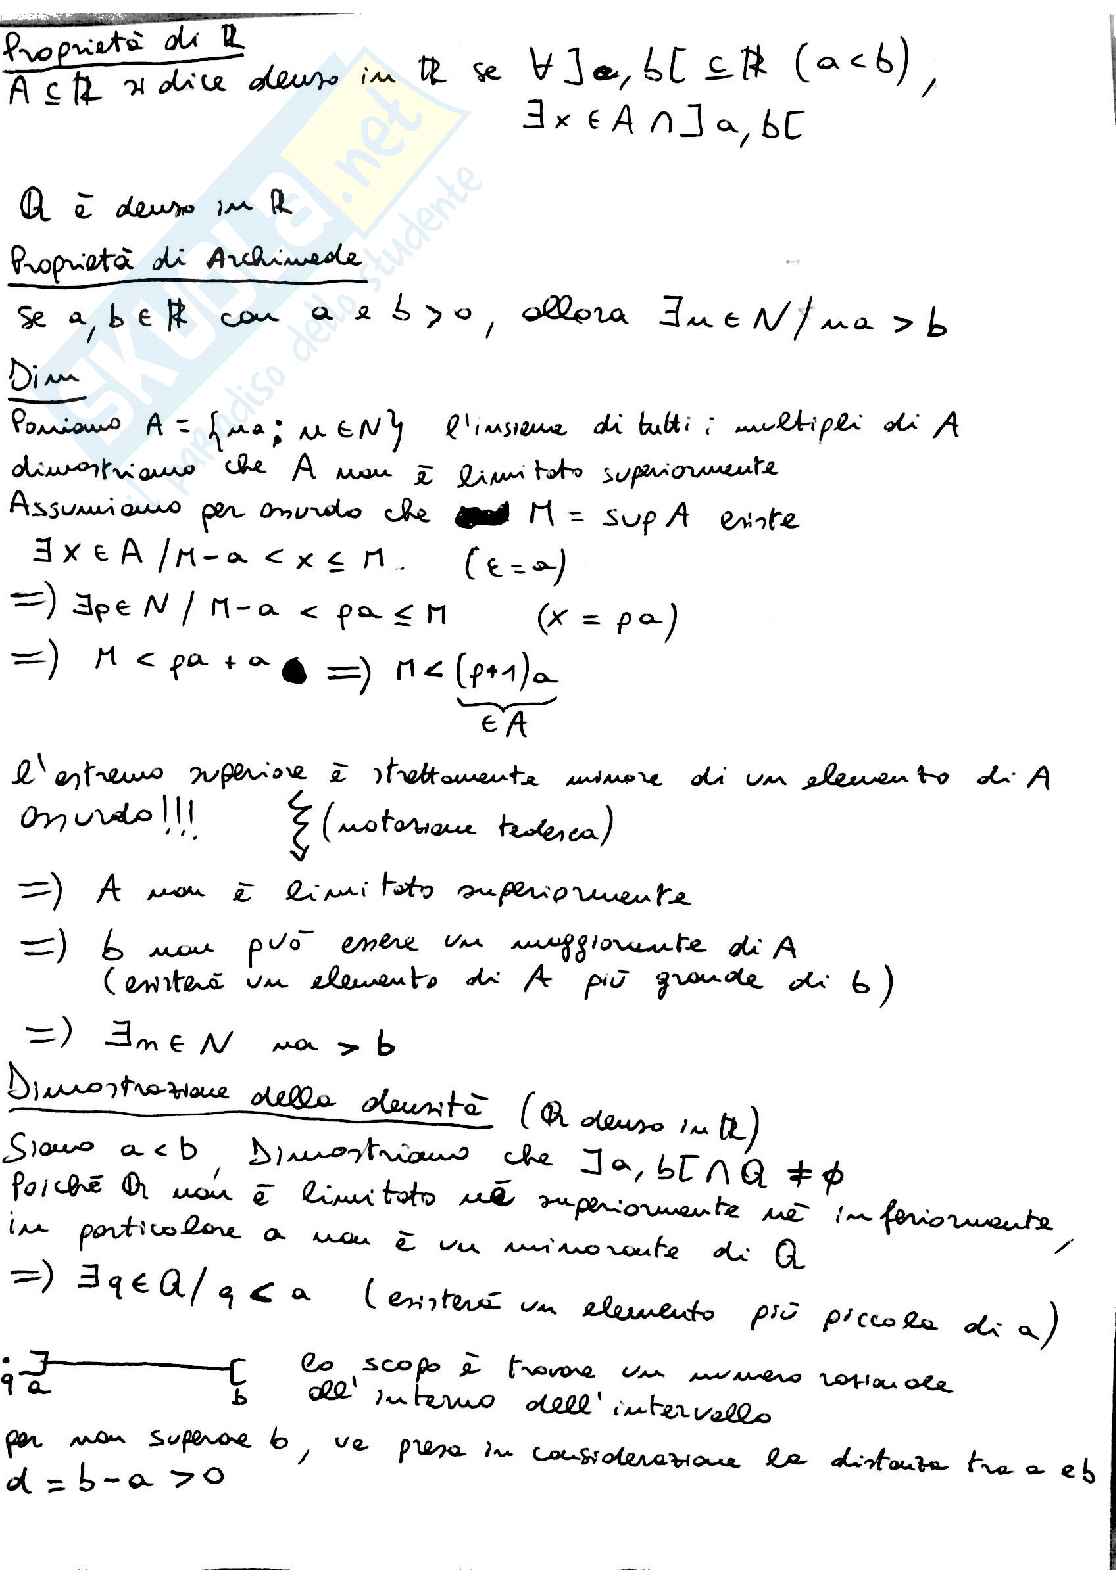 Proprietà di ℝ
A ⊆ ℝ si dice denso in ℝ se ∀ ]a, b[ ⊆ ℝ (a < b),
∃ x ∈ A ∩ ]a, b[
ℚ è denso in ℝ
Proprietà di Archimede
se a, b ∈ ℝ con a e b > 0, allora ∃ n ∈ N / na > b
Dim
Poniamo A = {na ; n ∈ N} l'insieme di tutti i multipli di A
dimostriamo che A non è limitato superiormente
Assumiamo per assurdo che M = sup A esiste
∃ x ∈ A / M - a < x ≤ M. (ε = a)
=) ∃p ∈ N / M - a < pa ≤ M (x = pa)
=) M < pa + a =) M < (p+1)a
∈ A
l'estremo superiore è strettamente minore di un elemento di A
assurdo!!! (notazione tedesca)
=) A non è limitato superiormente
=) b non può essere un maggiorante di A
(esisterà un elemento di A più grande di b)
=) ∃n ∈ N na > b
Dimostrazione della densità (ℚ denso in ℝ)
Siano a < b, Dimostriamo che ]a, b[ ∩ Q ≠ ∅
Poiché ℚ non è limitato né superiormente né inferiormente,
in particolare a non è un minorante di Q
=) ∃q ∈ Q / q < a (esisterà un elemento più piccolo di a)
q a b lo scopo è trovare un numero razionale
all'interno dell'intervallo
per non superare b, va presa in considerazione la distanza tra a e b
d = b - a > 0
SKUOLA.net
il paradiso dello studente